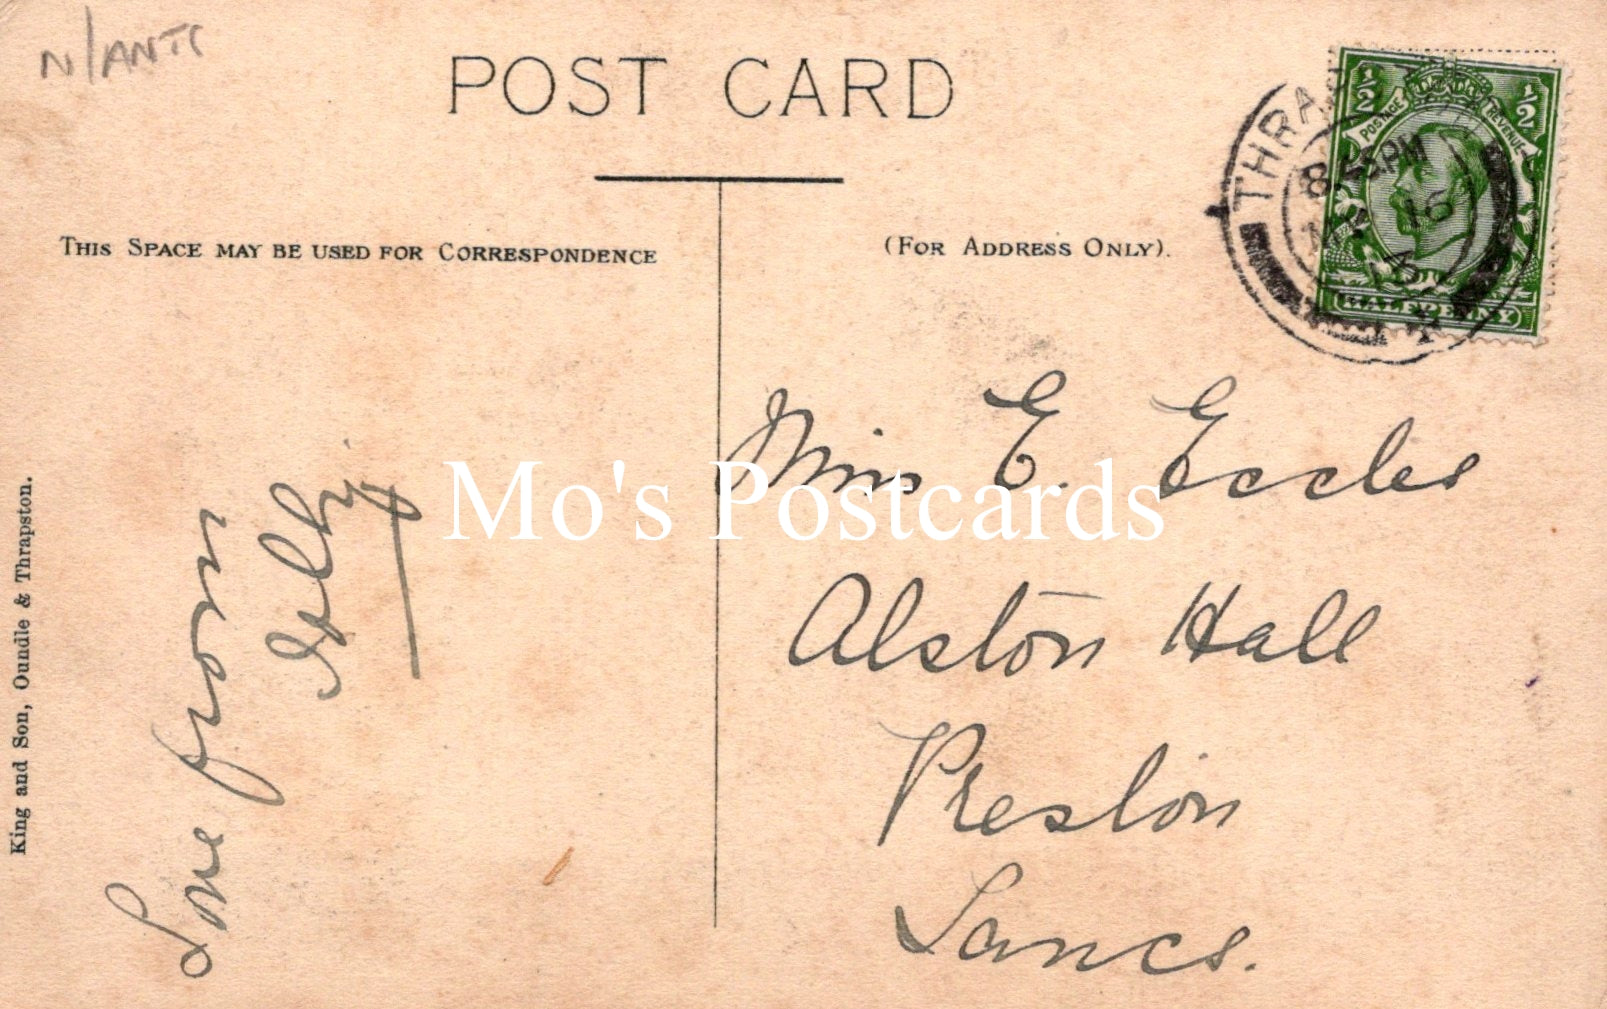 N/ANTS
POST CARD
THIS SPACE MAY BE USED FOR CORRESPONDENCE
(FOR ADDRESS ONLY).
½ ½
POSTAGE REVENUE
HALFPENNY
8.55PM
16
13
Miss E. Eccles
Alston Hall
Preston
Lancs.
Love from
King and Son, Oundle & Thrapston.
Mo's Postcards